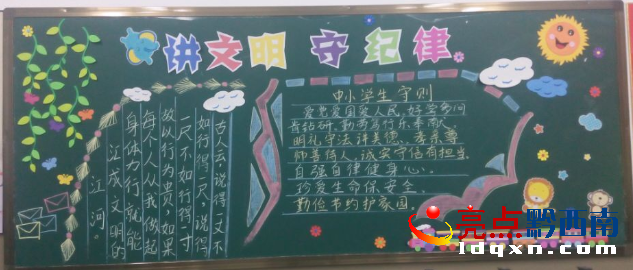 讲文明 守纪律
古人云:说得一丈不
如行得一尺,说得
一尺不如行得一寸
故以行为贵。如果
每个人从我做起
身体力行,就能
汇成文明的
江河。
中小学生守则
爱党爱国爱人民 好学多问
肯钻研 勤劳笃行乐奉献
明礼守法讲美德 孝亲尊
师善待人 诚实守信有担当
自强自律健身心
珍爱生命保安全
勤俭节约护家园
亮点黔西南
ldqxn.com